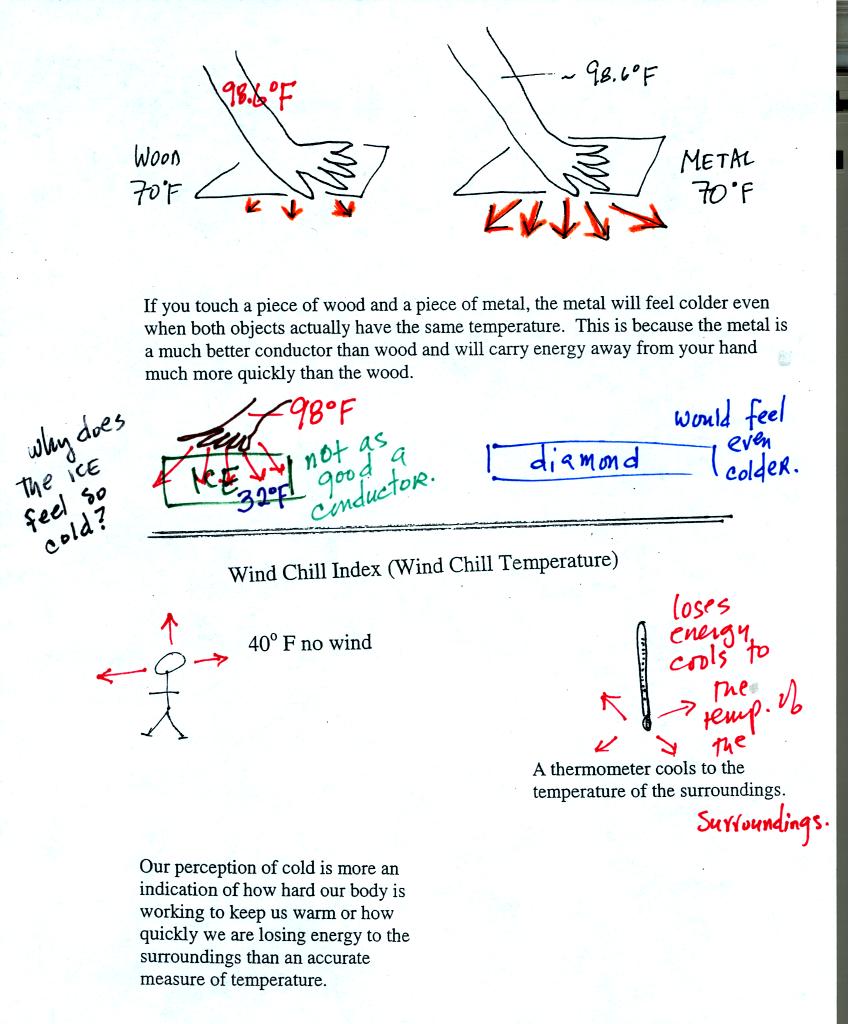 98.6°F
~ 98.6°F
WOOD
70°F
METAL
70°F
If you touch a piece of wood and a piece of metal, the metal will feel colder even
when both objects actually have the same temperature.  This is because the metal is
a much better conductor than wood and will carry energy away from your hand
much more quickly than the wood.
why does
the ICE
feel so
cold?
98°F
ICE
32°F
not as
good a
conductor.
diamond
would feel
even
colder.
Wind Chill Index (Wind Chill Temperature)
40° F no wind
loses
energy
cools to
the
temp. of
the
A thermometer cools to the
temperature of the surroundings.
Surroundings.
Our perception of cold is more an
indication of how hard our body is
working to keep us warm or how
quickly we are losing energy to the
surroundings than an accurate
measure of temperature.